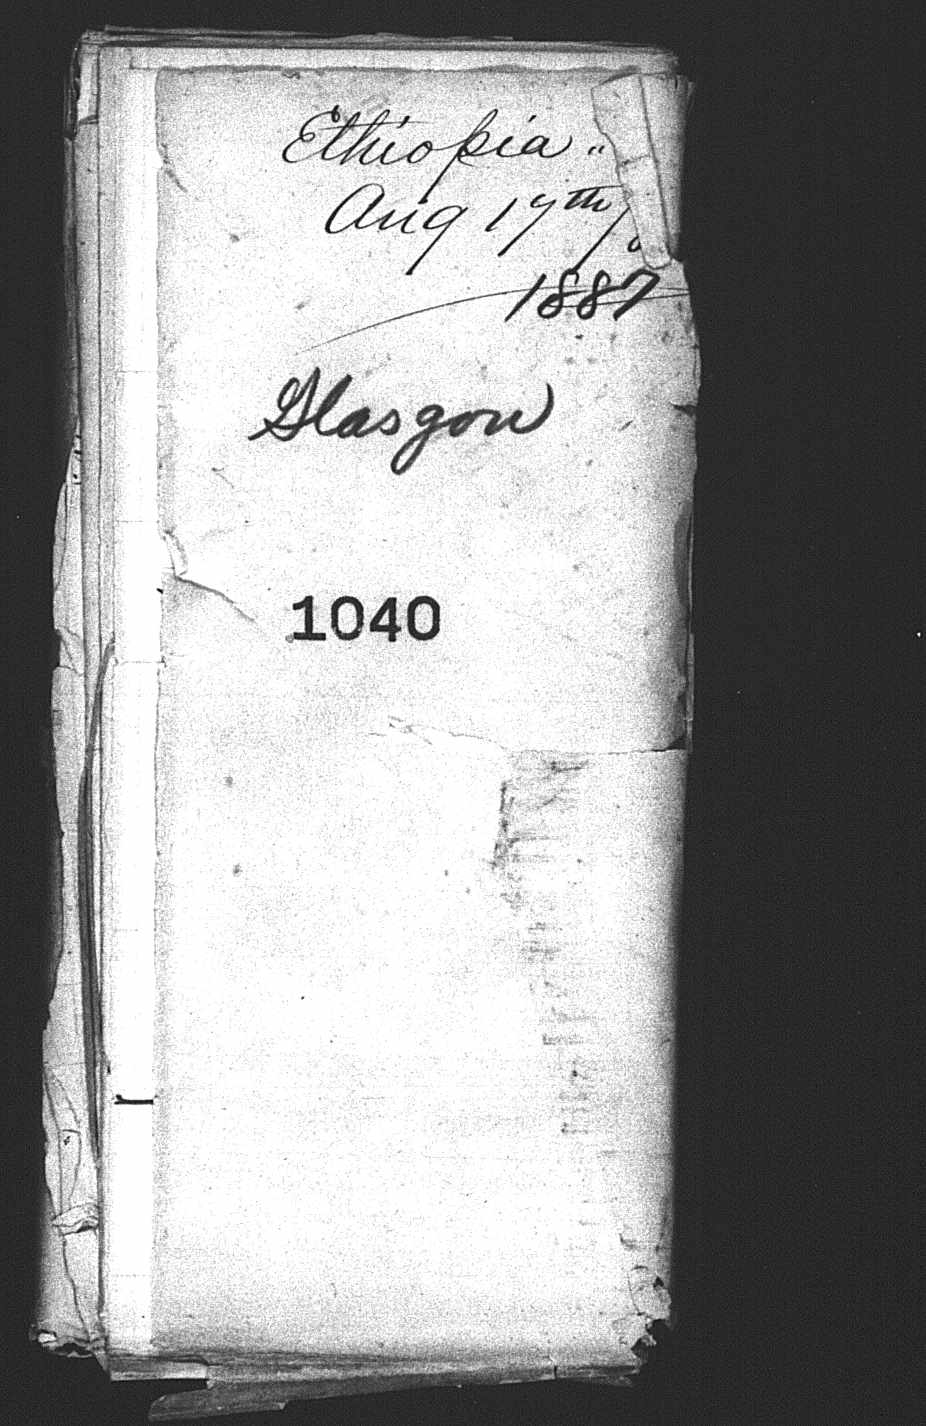 Ethiopia "
Aug 17th/8
1887
Glasgow
1040